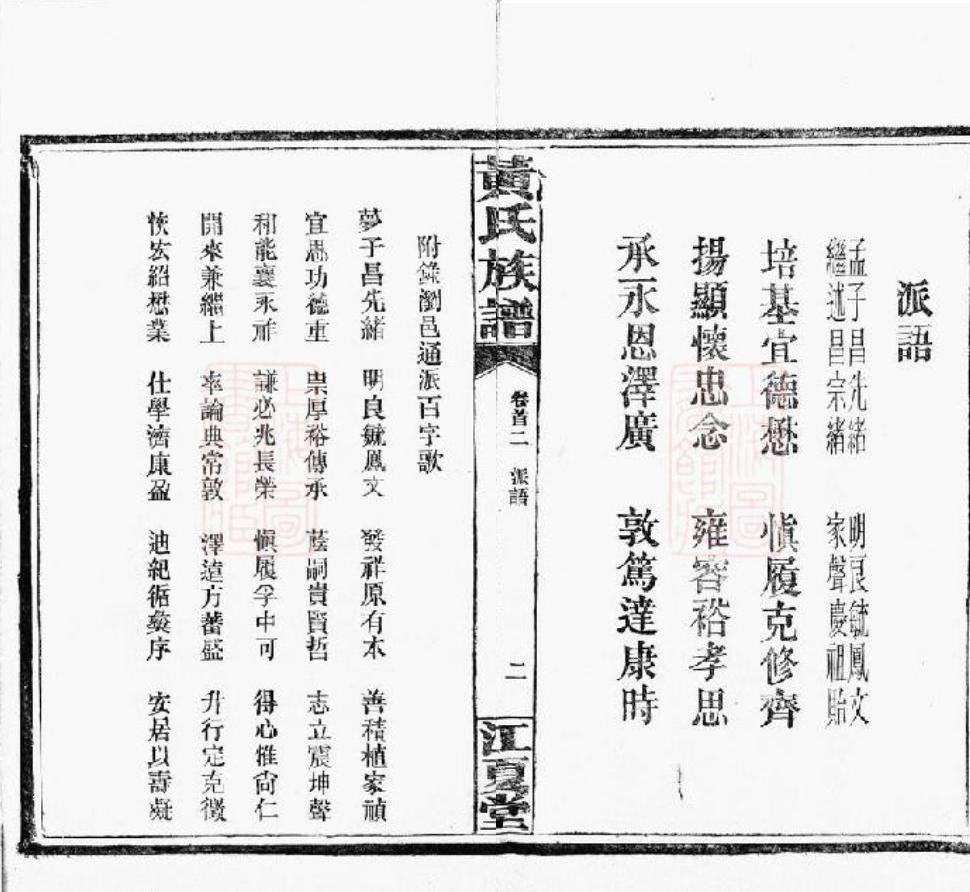 派語
孟子昌先緒 明良毓鳳文
繼述昌宗緒 家聲慶祖貽
培基宜德懋 慎履克修齊
揚顯懷忠念 雍容裕孝思
承永恩澤廣 敦篤達康時
黃氏族譜
卷首二 派語
二
江夏堂
附錄瀏邑通派百字歌
夢于昌先緒 明良毓鳳文 發祥原有本 善積植家禎
宜思功德重 崇厚裕傳承 蔭嗣貴賢哲 志立震坤聲
和能襄永祚 謙必兆長榮 慎履孚中可 得心惟尙仁
開來兼繼上 率論典常敦 澤遠方蕃盛 升行定克徵
恢宏紹懋業 仕學濟康盈 迪紀循彝序 安居以壽凝